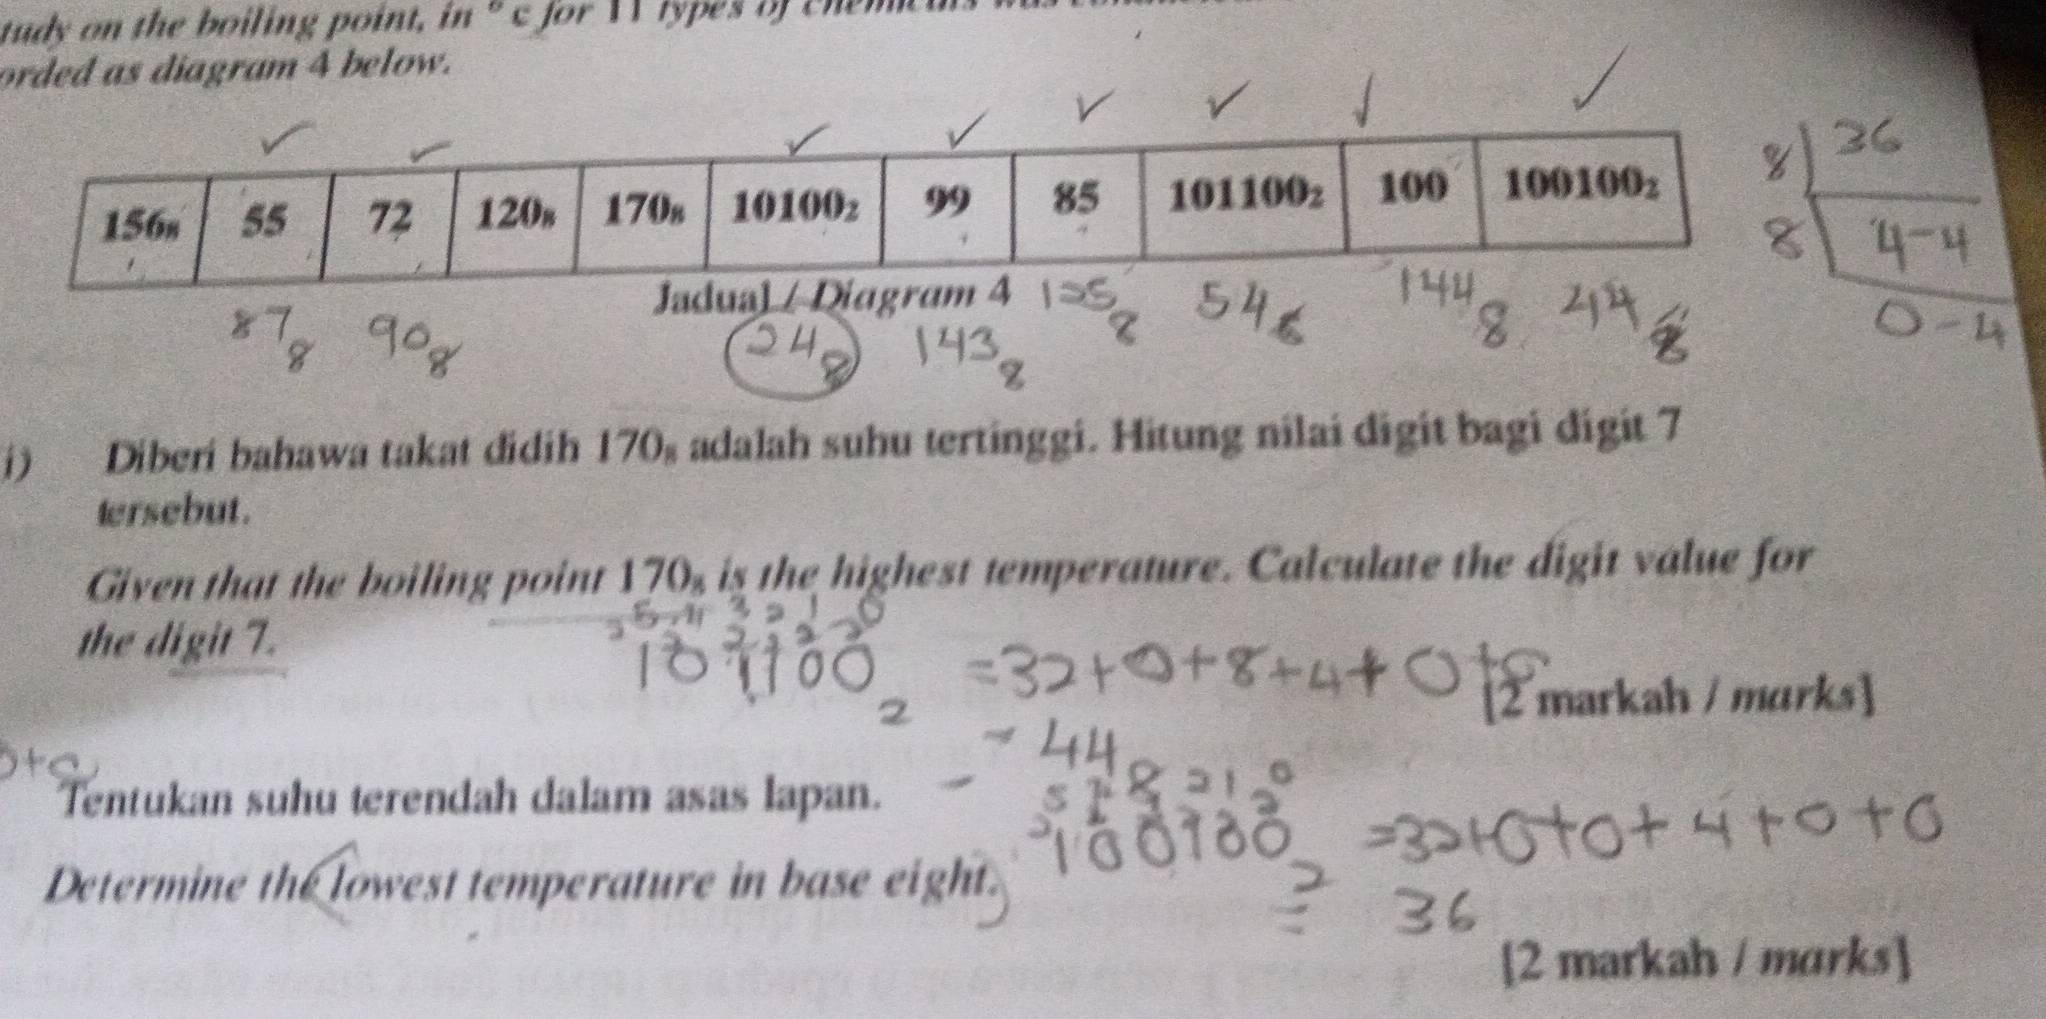 tudy on the boiling point, in ° c for 11 types of
orded as diagram 4 below.
156₈ 55 72 120₈ 170₈ 10100₂ 99 85 101100₂ 100 100100₂
8 36
8 4-4
0-4
Jadual / Diagram 4
87₈ 90₈ 24₈ 143₈ 125₈ 54₈ 144₈ 44₈
i) Diberi bahawa takat didih 170₈ adalah suhu tertinggi. Hitung nilai digit bagi digit 7
tersebut.
Given that the boiling point 170₈ is the highest temperature. Calculate the digit value for
the digit 7.
101100₂ = 32+0+8+4+0+0
[2 markah / marks]
= 44
Tentukan suhu terendah dalam asas lapan.
100100₂ = 32+0+0+4+0+0
Determine the lowest temperature in base eight.
= 36
[2 markah / marks]